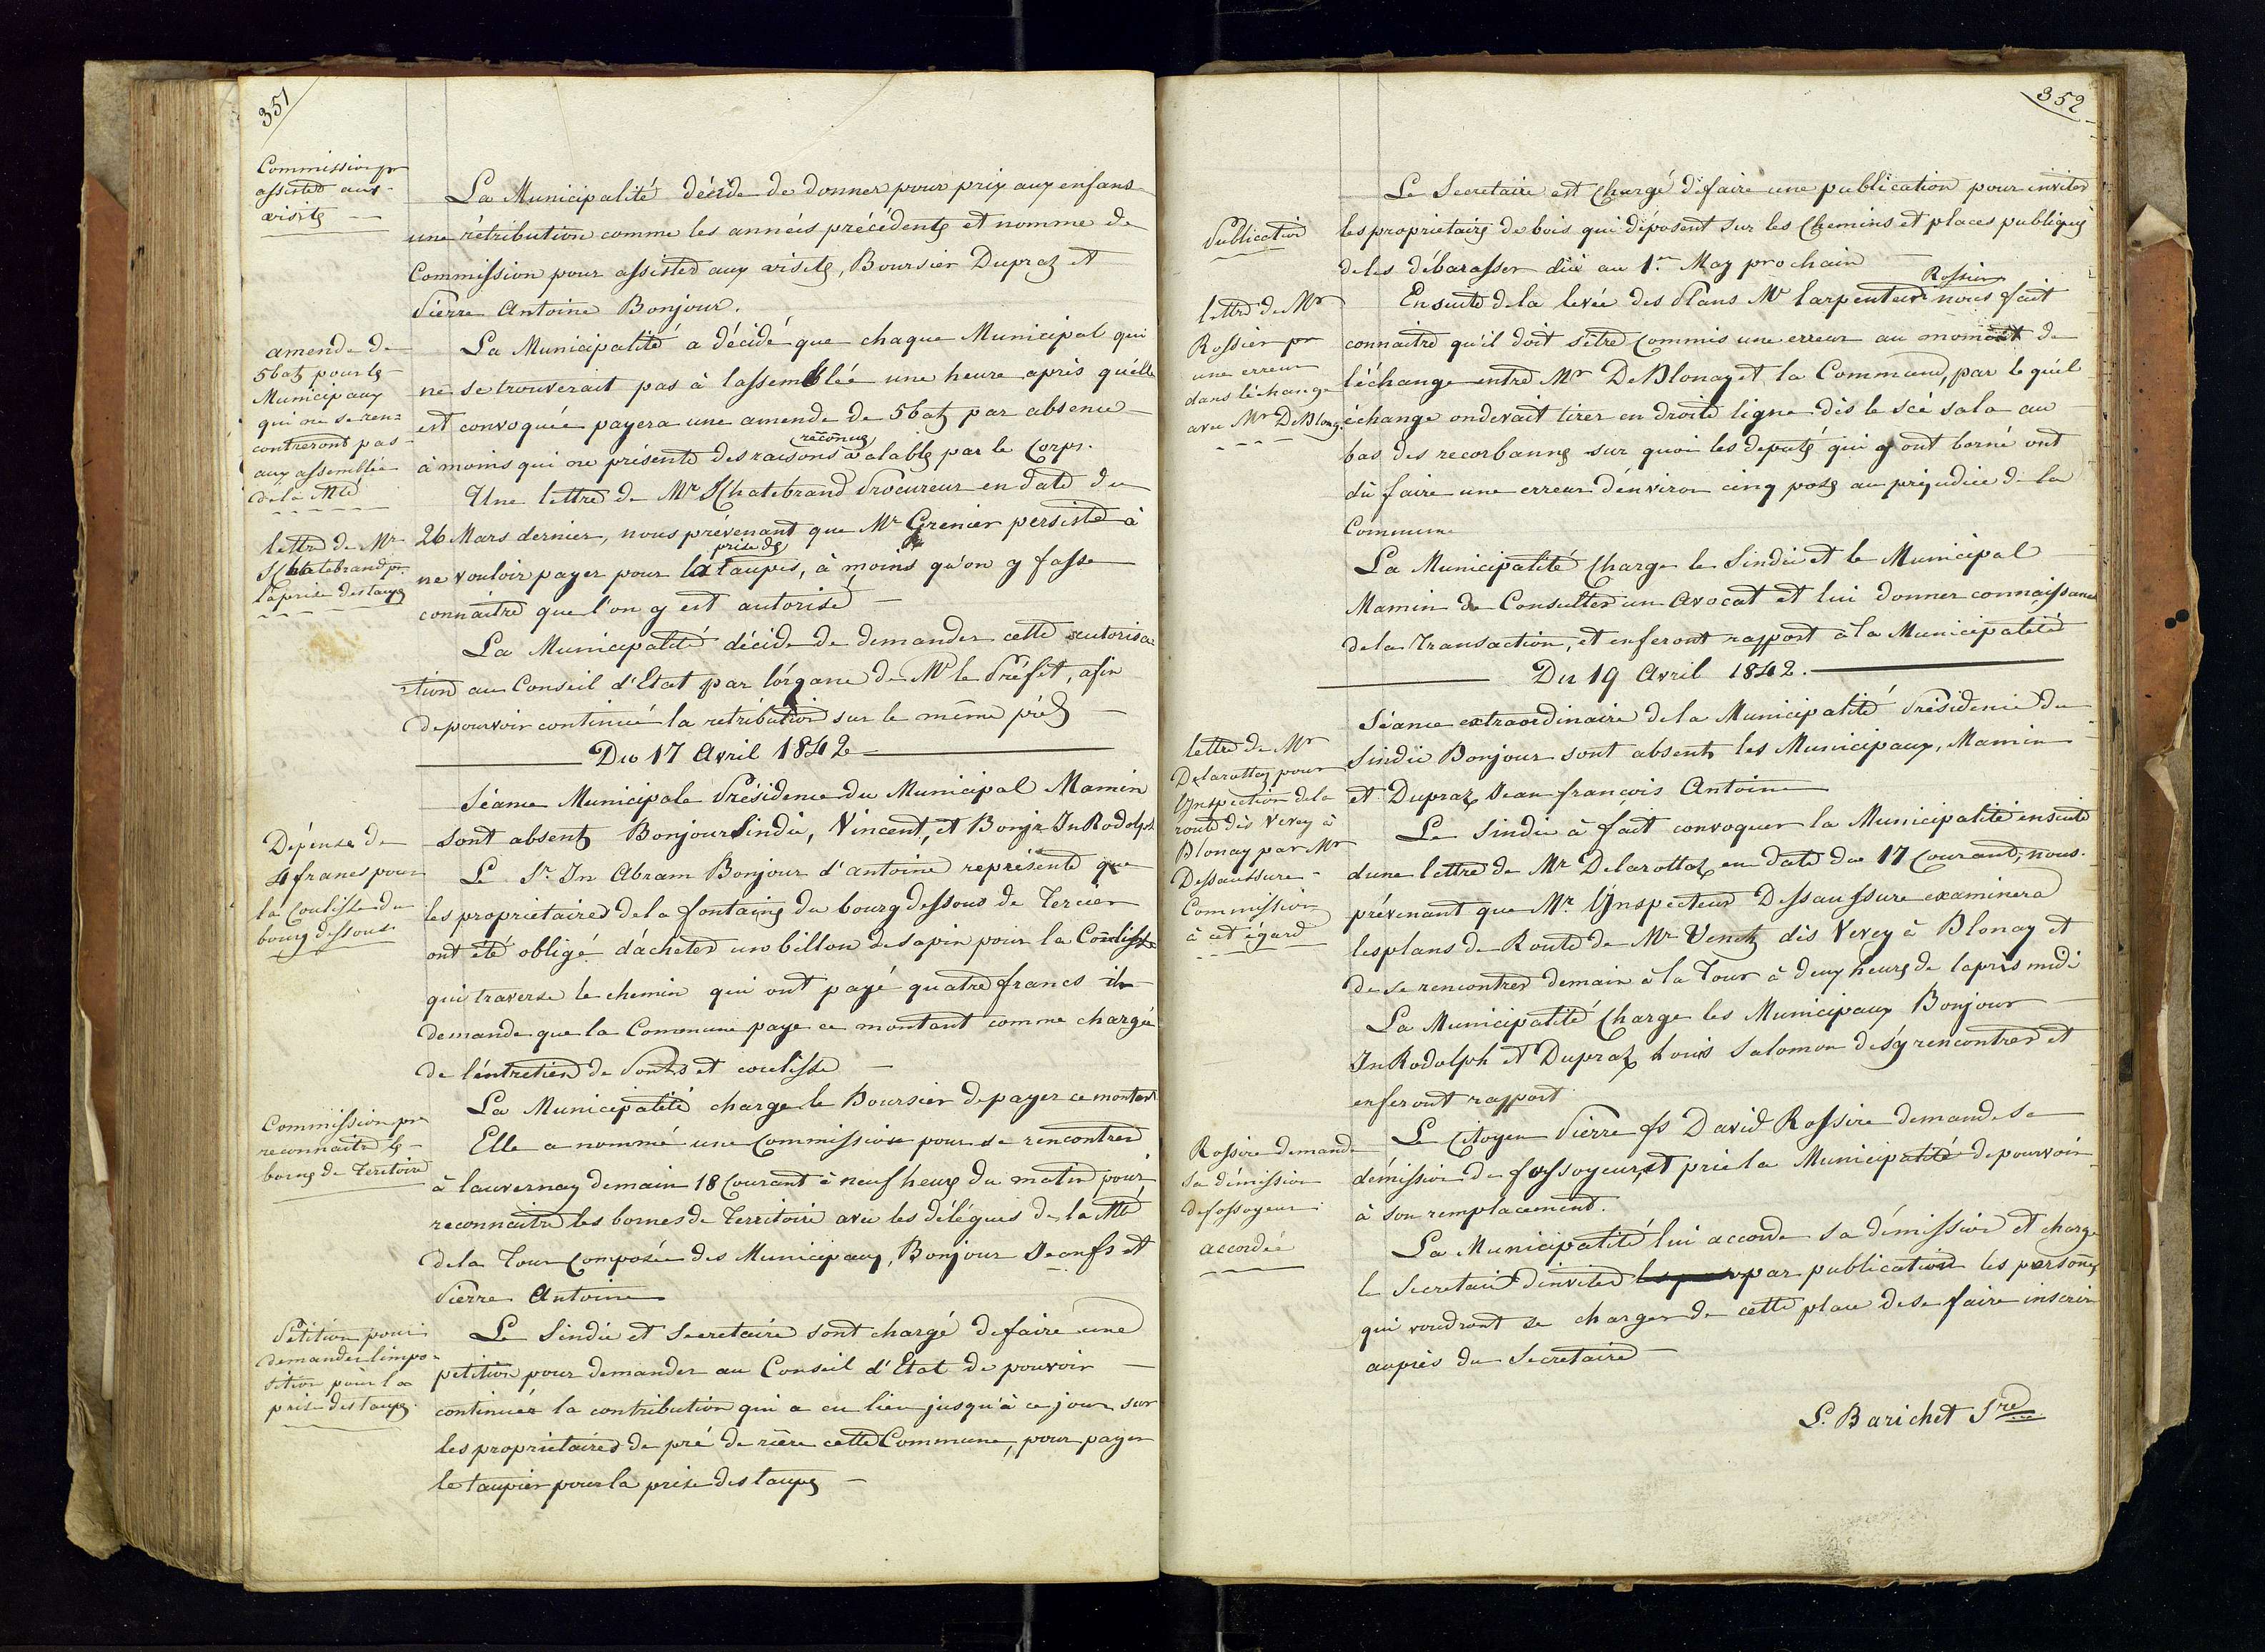 351
Commission pr
assister aux
visites
La Municipalité décide de donner pour prix aux enfans
une rétribution comme les années précédentes et nomme de
Commission pour assister aux visites, Boursier Dupraz et
Pierre Antoine Bonjour.
amende de
5 batz pour les
Municipaux
qui ne se ren=
contreront pas
aux assemblée
de la Mté
La Municipalité a décidé que chaque Municipal qui
ne se trouverait pas à lassemblée une heure après qu'elle
est convoquée payera une amende de 5 batz par absence
à moins qui ne présente des raisons reconnues valables par le Corps.
lettre de Mr
Chatebrand pr
la prise des taupes
Une lettre de Mr Chatebrand Procureur en date du
26 Mars dernier, nous prévenant que Mr Grenier persiste à
ne vouloir payer pour la prise des taupes, à moins qu'on y fasse
connaitre que l'on y est autorisé
La Municipalité décide de demander cette autorisa=
tion au Conseil d'Etat par lórgane de Mr le Préfet, afin
de pouvoir continué la retribution sur le même pié
Du 17 Avril 1842
Séance Municipale Présidence du Municipal Mamin
sont absents Bonjour Sindic, Vincent, et Bonjr Jn Rodolph
Dépense de
4 francs pour
la Coulisse du
bourg dessous
Le Sr. Jn Abram Bonjour d'antoine représente que
les propriétaires de la fontaine du bourg dessous de Tercier
ont été obligé d'acheter un billon de sapin pour la Coulisse
qui traverse le chemin qui ont payé quatre francs ils
demande que la Commune paye ce montant comme chargée
de léntretien de Ponts et coulisse
La Municipalité charge le Boursier de payer ce montant
Commission pr
reconnaitre les
bornes de Teritoire
Elle a nommé une Commission pour se rencontrer
à lauvernay demain 18 Courant à neuf heures du matin pour
reconnaitre les bornes de Territoire avec les délégués de la Mté
de la Tour Composée des Municipaux, Bonjour Jean fs et
Pierre Antoine
Pétition pour
demander limpo-
sition pour la
prise des taupes
Le Sindic et Secretaire sont chargé de faire une
petition pour demander au Conseil d'Etat de pouvoir
continuér la contribution qui a eu lieu jusqu'à ce jour sur
les propriétaires de pré de rière cette Commune, pour payer
le taupier pour la prise des taupes
352
Publication
Le Secretaire est Chargé de faire une publication pour inviter
les proprietaires de bois qui déposent sur les Chemins et places publiques
de les débarasser dici au 1er May prochain
lettre de Mr
Rossier pr
une erreur
dans léchange
avec Mr DeBlonay
Ensuite de la levée des Plans Mr larpenteur Rossier nous fait
connaitre qu'il doit sètre Commis une erreur au moment de
léchange entre Mr DeBlonay et la Commune, par lequel
échange on devait tirer en droite ligne dès le scé sala au
bas des recorbannes sur quoi les deputés qui y ont borné ont
dû faire une erreur dénviron cinq poses au préjudice de la
Commune
La Municipalité Charge le Sindic et le Municipal
Mamin de Consulter un Avocat et lui donner connaissance
de la Transaction, et enferont rapport à la Municipalité
Du 19 Avril 1842.
Séance extraordinaire de la Municipalité Présidence du
Sindic Bonjour sont absents les Municipaux, Mamin
et Dupraz Jean françois Antoine
lettre de Mr
Delarottaz pour
lInspection de la
route dès Vevey à
Blonay par Mr
Dessaussure
Commission
à cet égard
Le Sindic à fait convoquer la Municipalité ensuite
dune lettre de Mr Delarottaz en date du 17 Courant, nous
prévenant que Mr. lInspecteur Dessaussure examinera
les plans de Route de Mr Venetz dès Vevey à Blonay et
de se rencontrer demain à la Tour à deux heures de laprès midi
La Municipalité Charge les Municipaux Bonjour
Jn Rodolph et Dupraz Louis Salomon de sý rencontrer et
enferont rapport
Rossire demande
sa démission
de fossoyeur
accordée
Le Citoyen Pierre fs David Rossire demande sa
démission de fossoyeur, et prie la Municipalité de pourvoir
à son remplacement.
La Municipalité lui accorde sa démission et charge
le Secretaire dinviter par publication les persones
qui voudront se charger de cette place de se faire inscrire
auprès du Secretaire
L. Barichet Sre